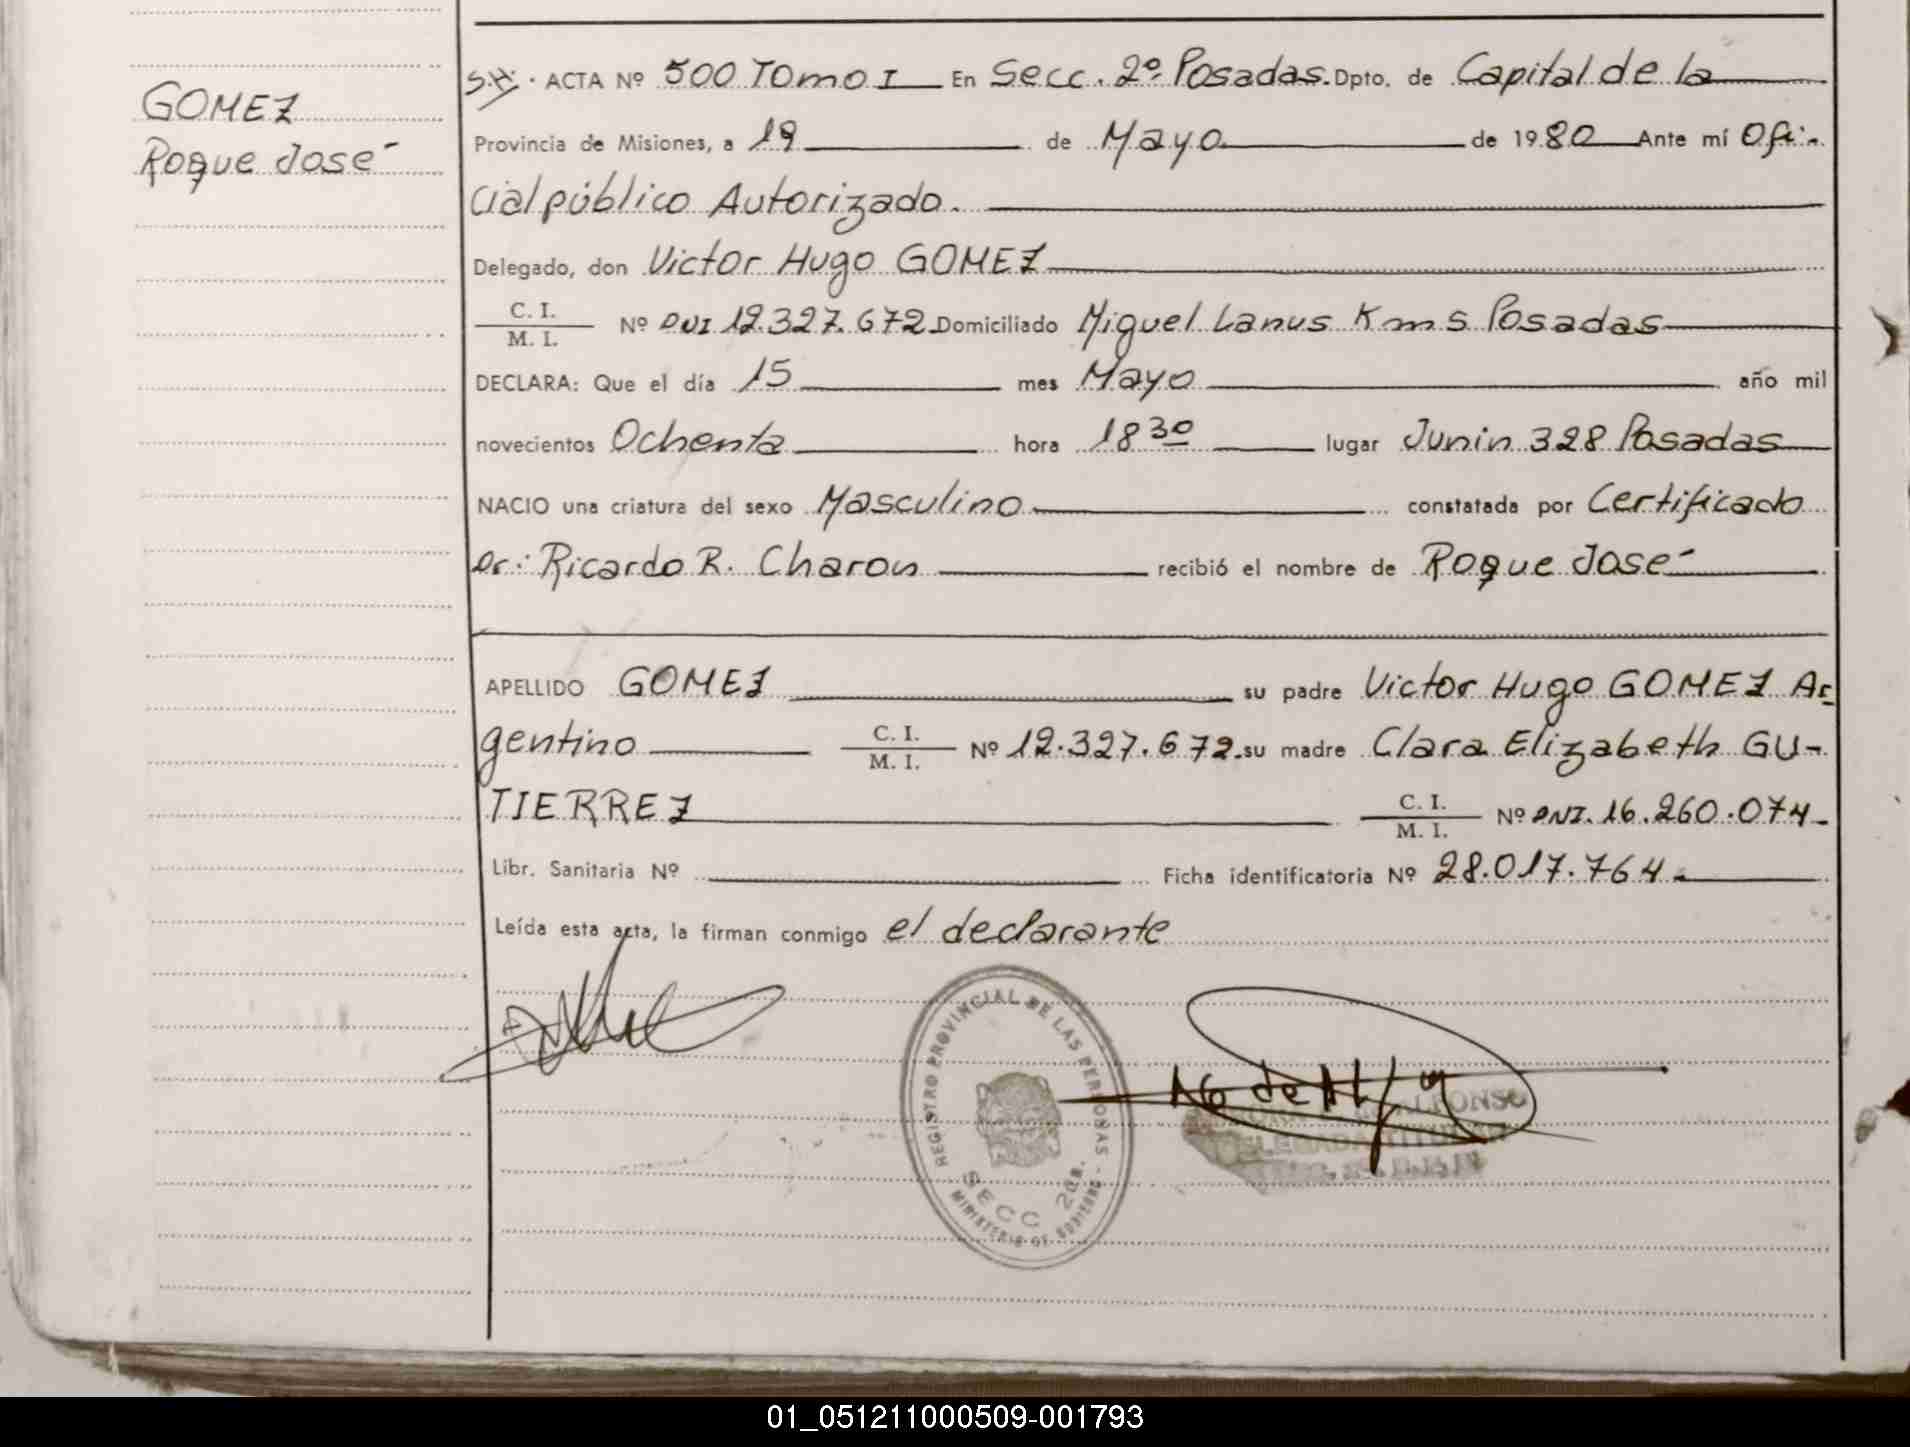 GOMEZ
Roque José
S.H. ACTA Nº 500 Tomo I En Secc. 2º Posadas. Dpto. de Capital de la
Provincia de Misiones, a 19 de Mayo de 1980 Ante mí Ofi-
cial público Autorizado.
Delegado, don Victor Hugo GOMEZ
C. I.
M. I. Nº DNI 12.327.672 Domiciliado Miguel Lanus Kms Posadas
DECLARA: Que el día 15 mes Mayo año mil
novecientos Ochenta hora 18 30 lugar Junin 328 Posadas
NACIO una criatura del sexo Masculino constatada por Certificado
Dr: Ricardo R. Charon recibió el nombre de Roque José
APELLIDO GOMEZ su padre Victor Hugo GOMEZ Ar
gentino C. I.
M. I. Nº 12.327.672. su madre Clara Elizabeth GU-
TIERREZ C. I.
M. I. Nº DNI. 16.260.074-
Libr. Sanitaria Nº Ficha identificatoria Nº 28.017.764-
Leída esta acta, la firman conmigo el declarante
REGISTRO PROVINCIAL DE LAS PERSONAS -
SECC 2da.
MINISTERIO DE GOBIERNO
01_051211000509-001793